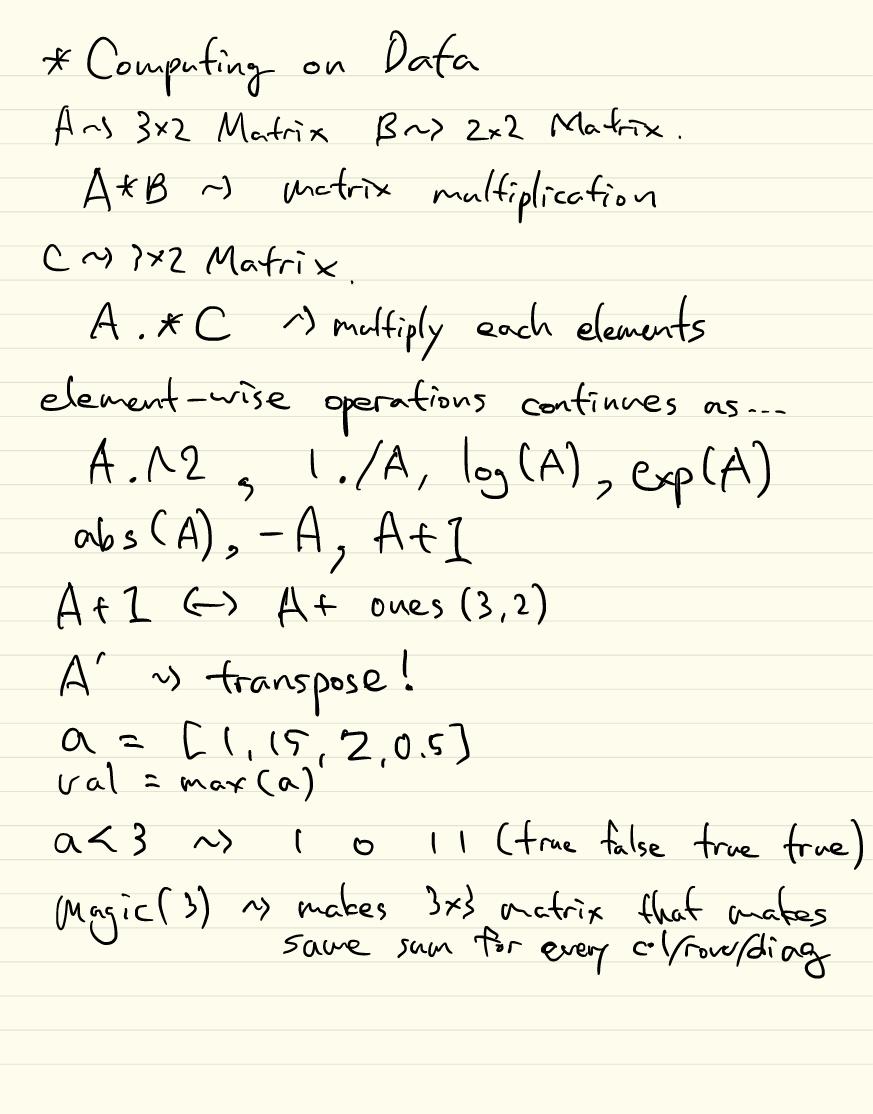 * Computing on Data
A ~> 3×2 Matrix B ~> 2×2 Matrix.
A*B ~> matrix multiplication
C ~> 3×2 Matrix.
A .* C ~> multiply each elements
element-wise operations continues as...
A.^2, 1./A, log(A), exp(A)
abs(A), -A, A+1
A+1 <-> A+ ones (3,2)
A' ~> transpose!
a = [1, 15, 2, 0.5]
val = max(a)
a<3 ~> 1 0 1 1 (true false true true)
magic(3) ~> makes 3x3 matrix that makes
same sum for every col/row/diag